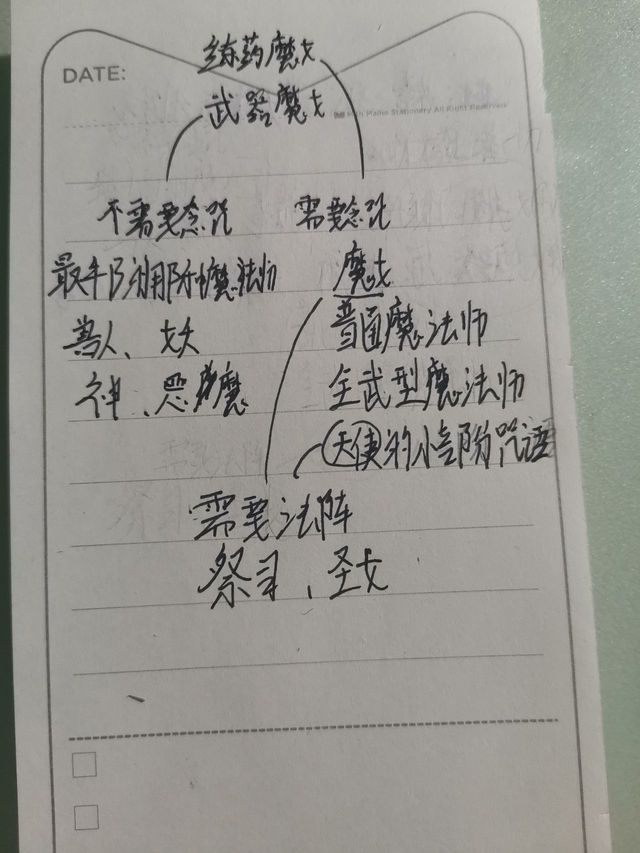 练药魔女
DATE:
武器魔女
Plaine Stationery All Right Reserved
不需要念咒
需要念咒
魔法师
魔女
兽人、妖
普通魔法师
神、恶魔
全武型魔法师
天使的小部份咒语
需要法阵
祭司、圣女